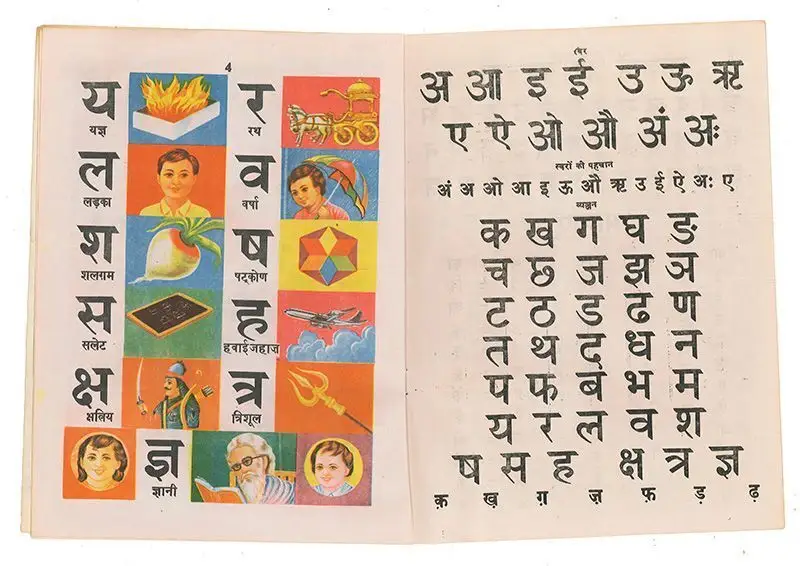 4
य र
यज्ञ रथ
ल व
लड़का वर्षा
श ष
शलग़म षट्कोण
स ह
सलेट हवाईजहाज
क्ष त्र
क्षत्रिय त्रिशूल
ज्ञ
ज्ञानी
स्वर
अ आ इ ई उ ऊ ऋ
ए ऐ ओ औ अं अः
स्वरों की पहचान
अं अ ओ आ इ ऊ औ ऋ उ ई ऐ अः ए
व्यञ्जन
क ख ग घ ङ
च छ ज झ ञ
ट ठ ड ढ ण
त थ द ध न
प फ ब भ म
य र ल व श
ष स ह क्ष त्र ज्ञ
क़ ख़ ग़ ज़ फ़ ड़ ढ़